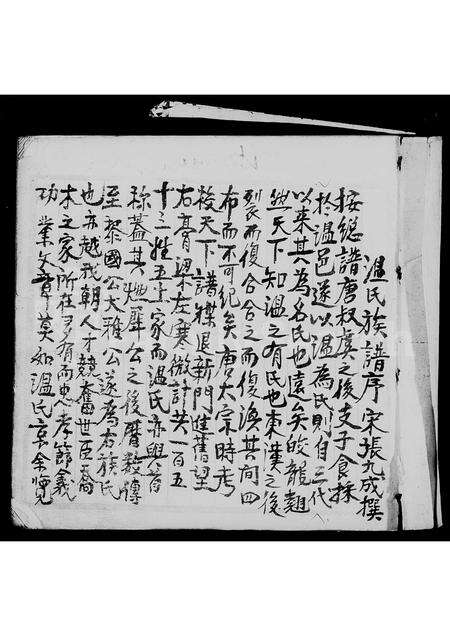 溫氏族譜序 宋張九成撰
按總譜唐叔虞之後支子食採
於溫邑遂以溫為氏則自三代
以來其為名氏也遠矣皎龍翹
然天下知溫之有氏也東漢之後
裂而復合合之而復渙其間四
布而不可紀矣唐太宗時考
校天下譜牒退新門進舊望
右膏梁左寒微計共一百五
十三姓五十家而溫氏亦與首
称蓋其 之後曆数傳
至黎國公大雅公遂為右族氏
也亦越我朝人才競奮世臣喬
木之家所在多有而忠孝節義
功業文章莫如溫氏 余覽